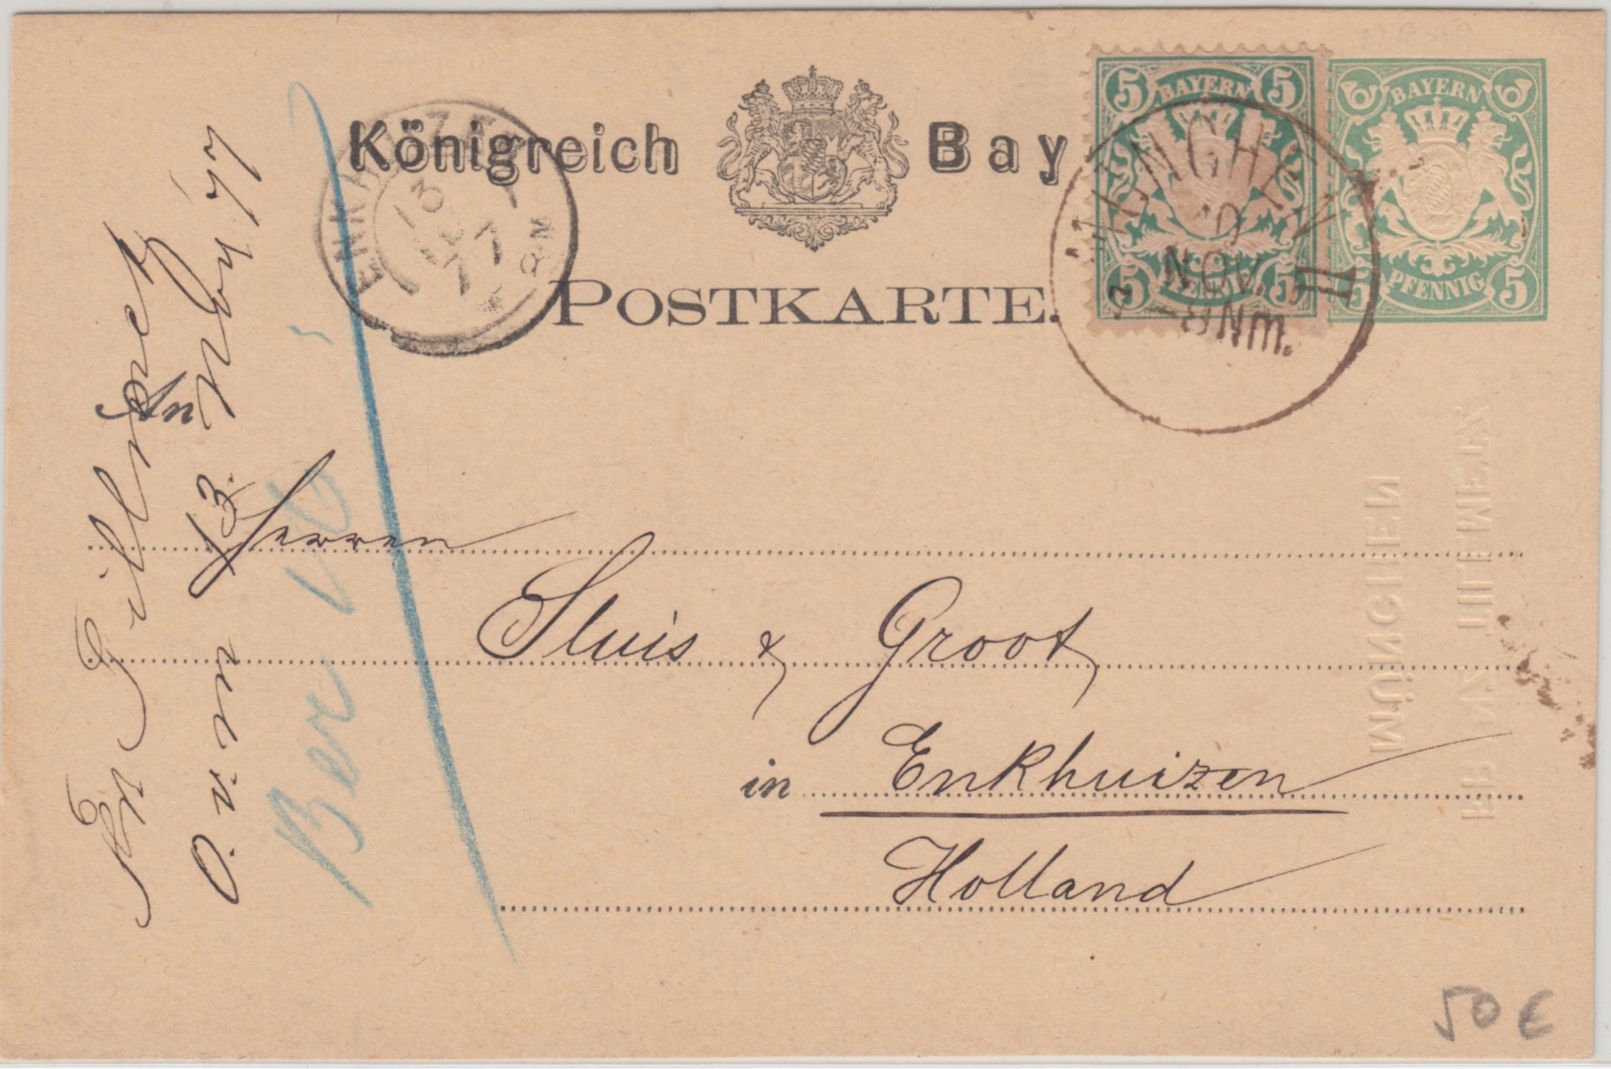 Königreich Bay
POSTKARTE.
5 BAYERN 5
5 PFENNIG 5
BAYERN
5 PFENNIG 5
MÜNCHEN II
10
NOV.
Nm.
ENKHUIZEN
13
77
An
Herren
Sluis & Groot
in Enkhuizen
Holland
13 Nov 77
MÜNCHEN
50 €